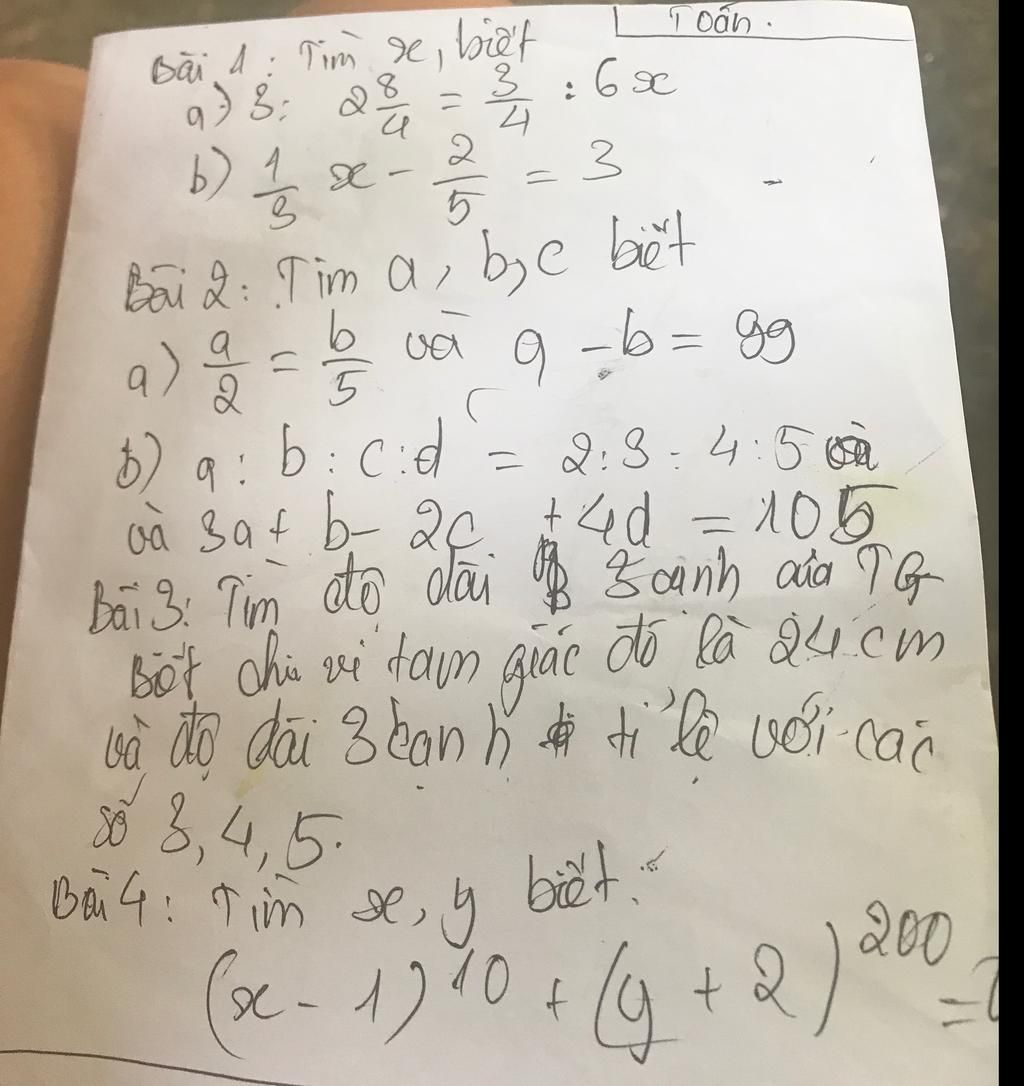 Toán.
Bài 1: Tìm x, biết
a) 3: 2 8/4 = 3/4 : 6x
b) 1/3 x - 2/5 = 3
Bài 2: Tìm a, b, c biết
a) a/2 = b/5 và a - b = 99
b) a : b : c : d = 2:3:4:5
và 3a + b - 2c + 4d = 105
Bài 3: Tìm độ dài 3 cạnh của TG
Biết chu vi tam giác đó là 24 cm
và độ dài 3 cạnh tỉ lệ với các
số 3, 4, 5.
Bài 4: Tìm x, y biết:
(x - 1)^10 + (y + 2)^200 =